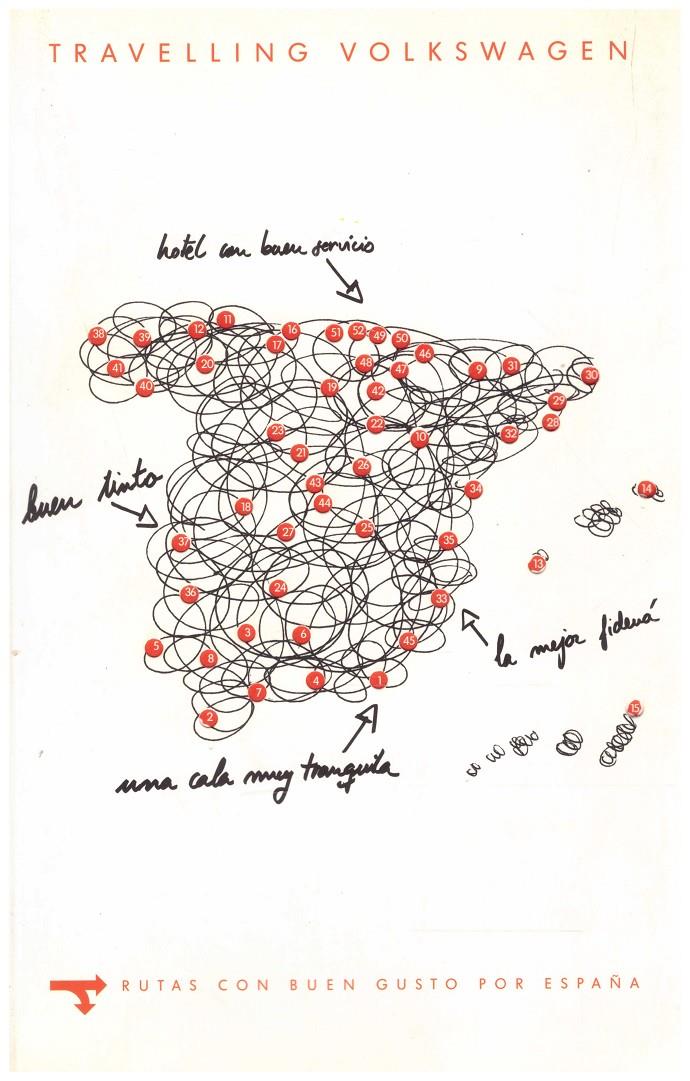 TRAVELLING VOLKSWAGEN
hotel con buen servicio
11
38
39
12
16
51
52
49
50
17
46
41
20
48
47
9
31
30
40
19
42
29
22
28
23
10
32
21
26
43
34
14
buen tinto
18
44
27
25
37
35
13
36
24
33
3
6
45
5
8
la mejor fideuá
7
4
1
2
15
una cala muy tranquila
RUTAS CON BUEN GUSTO POR ESPAÑA